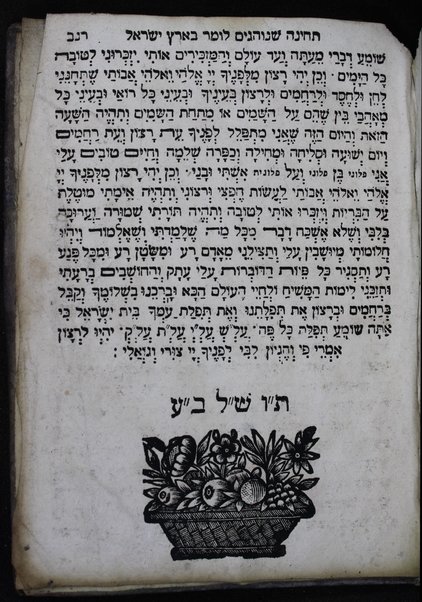 תחינה שנוהגים לומר בארץ ישראל רנב
שומע דברי מעתה ועד עולם והמזכירים אותי יזכרוני לטובה
כל הימים · וכן יהי רצון מלפניך יי אלהי ואלהי אבותי שתתנני
לחן ולחסד ולרחמים ולרצון בעיניך ובעיני כל רואי ובעיני כל
מאהבי בין שהם על השמים או מתחת השמים ותהיה השעה
הזאת והיום הזה שאני מתפלל לפניך עת רצון ועת רחמים
ויום ישועה וסליחה ומחילה וכפרה שלמה וחיים טובים עלי
אני פלוני בן פלוני ועל פלונית אשתי ובני · וכן יהי רצון מלפניך יי
אלהי ואלהי אבותי לעשות חפצי ורצוני ותהיה אימתי מוטלת
על הבריות ויזכרו אותי לטובה ותהיה תורתי שמורה וערוכה
בלבי ושלא אשכח דבר מכל מה שלמדתי ושאלמוד ויהיו
חלומותי מיושבין עלי ותצילני מאדם רע ומשטן רע ומכל פגע
רע ותכניע כל פיות הדוברות עלי עתק והחושבים ברעתי
ותזכני לימות המשיח ולחיי העולם הבא וברכנו בשלומך וקבל
ברחמים וברצון את תפלתנו ואת תפלת עמך בית ישראל כי
אתה שומע תפלת כל פה · על"ש על"י על"ת על"ק · יהיו לרצון
אמרי פי והגיון לבי לפניך יי צורי וגואלי :
ת"ו ש"ל ב"ע